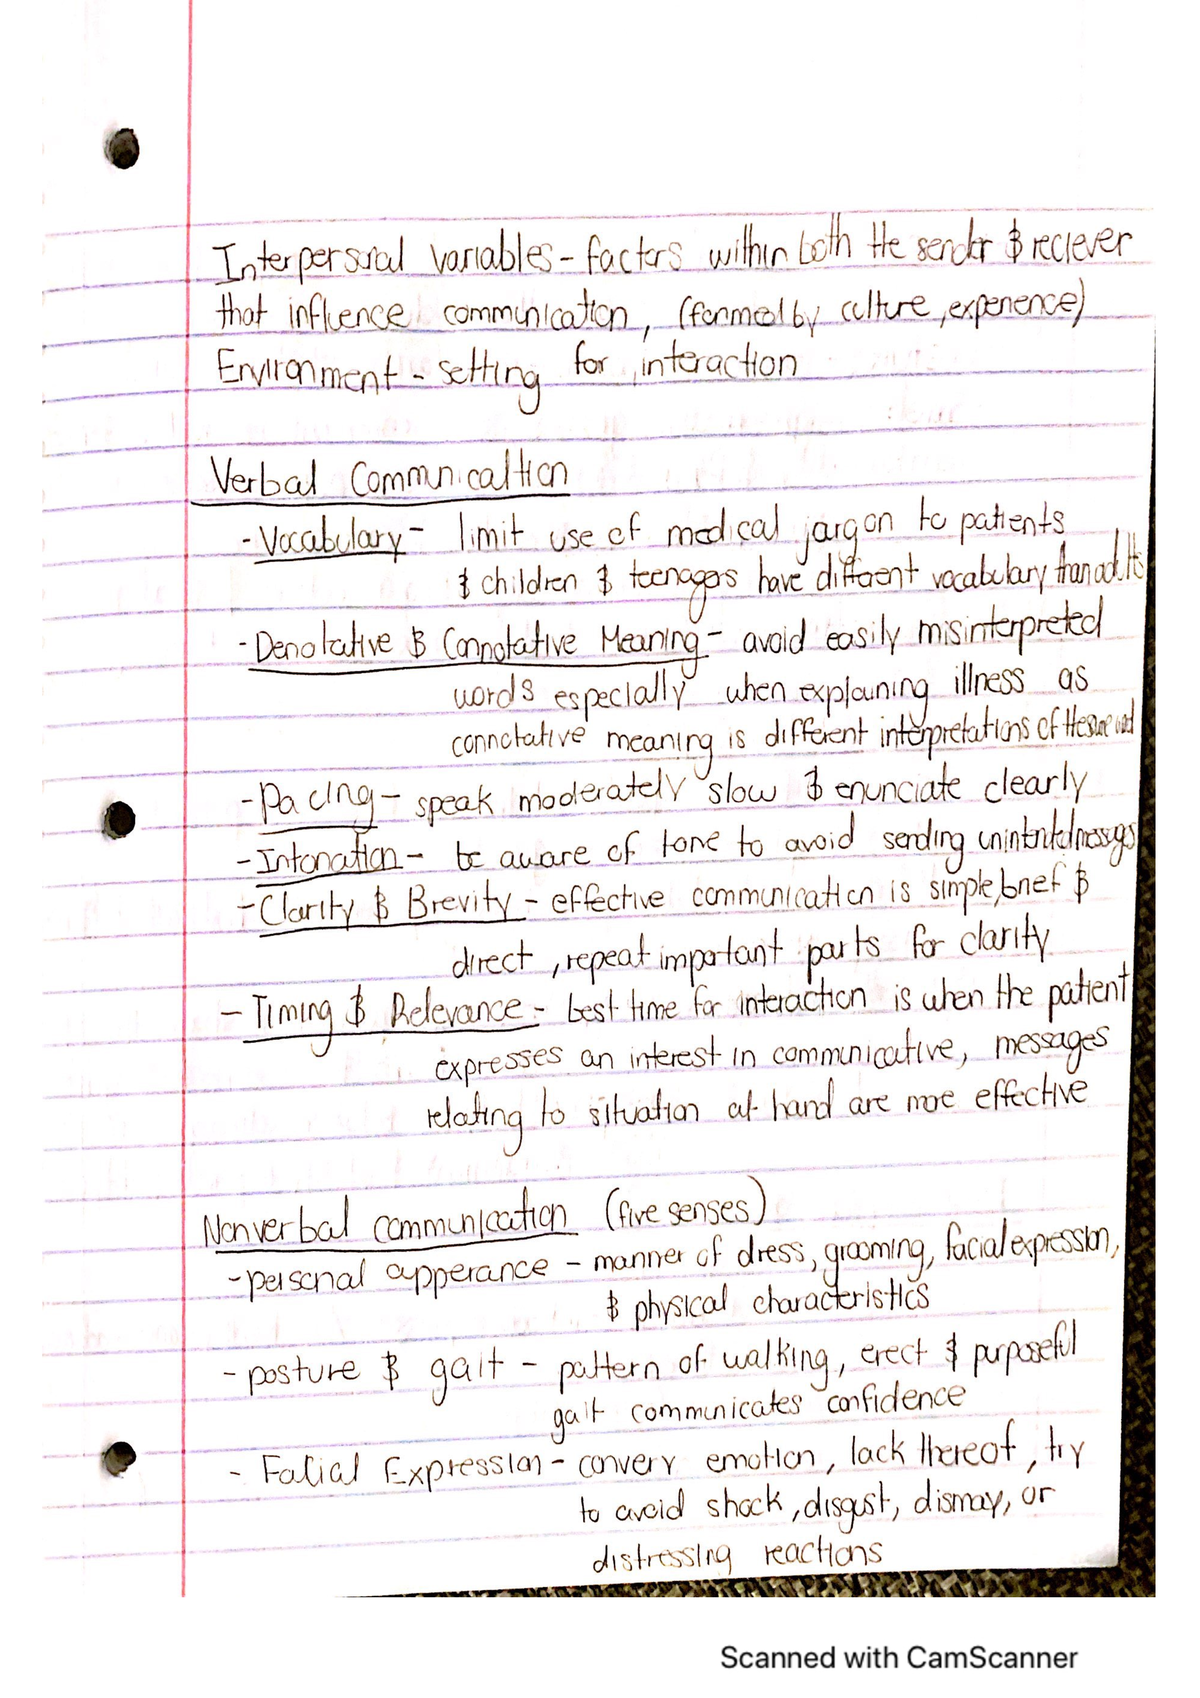 Interpersonal variables - factors within both the sender & reciever
that influence communication, (formed by culture, experience)
Environment - setting for interaction
Verbal Communication
- Vocabulary - limit use of medical jargon to patients
& children & teenagers have different vocabulary than adults
- Denotative & Connotative Meaning - avoid easily misinterpreted
words especially when explaining illness as
connotative meaning is different interpretations of the same word
- Pacing - speak moderately slow & enunciate clearly
- Intonation - be aware of tone to avoid sending unintended messages
- Clarity & Brevity - effective communication is simple, brief &
direct, repeat important parts for clarity
- Timing & Relevance - best time for interaction is when the patient
expresses an interest in communicative, messages
relating to situation at hand are more effective
Nonverbal communication (five senses)
- personal apperance - manner of dress, grooming, facial expression,
& physical characteristics
- posture & gait - pattern of walking, erect & purposeful
gait communicates confidence
- Facial Expression - convery emotion, lack thereof, try
to avoid shock, disgust, dismay, or
distressing reactions
Scanned with CamScanner